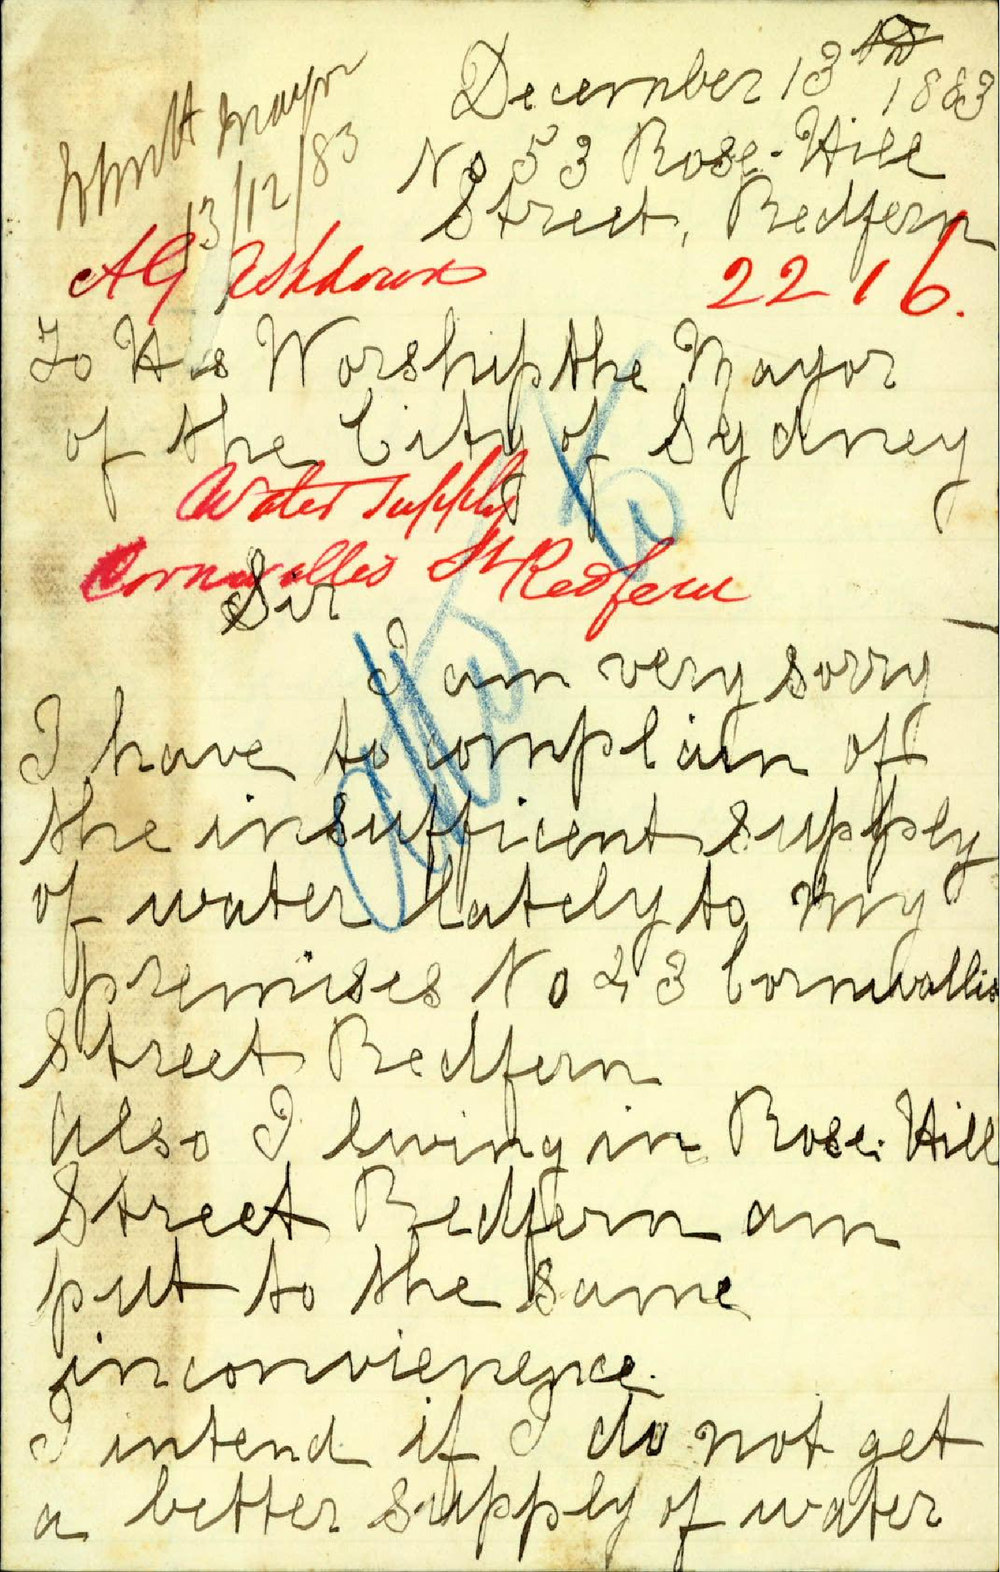 December 13th
1883
Mayor
13/12/83
No 53 Rose-Hill
Street, Redfern
A G Ashdown
2216.
To His Worship the Mayor
of the City of Sydney
Water supply
Cornwallis St Redfern
Sir
I am very sorry
I have to complain of
the insufficent supply
of water lately to my
premises No 23 Cornwallis
Street Redfern
Also I living in Rose-Hill
Street Redfern am
put to the same
inconvienence.
I intend if I do not get
a better supply of water